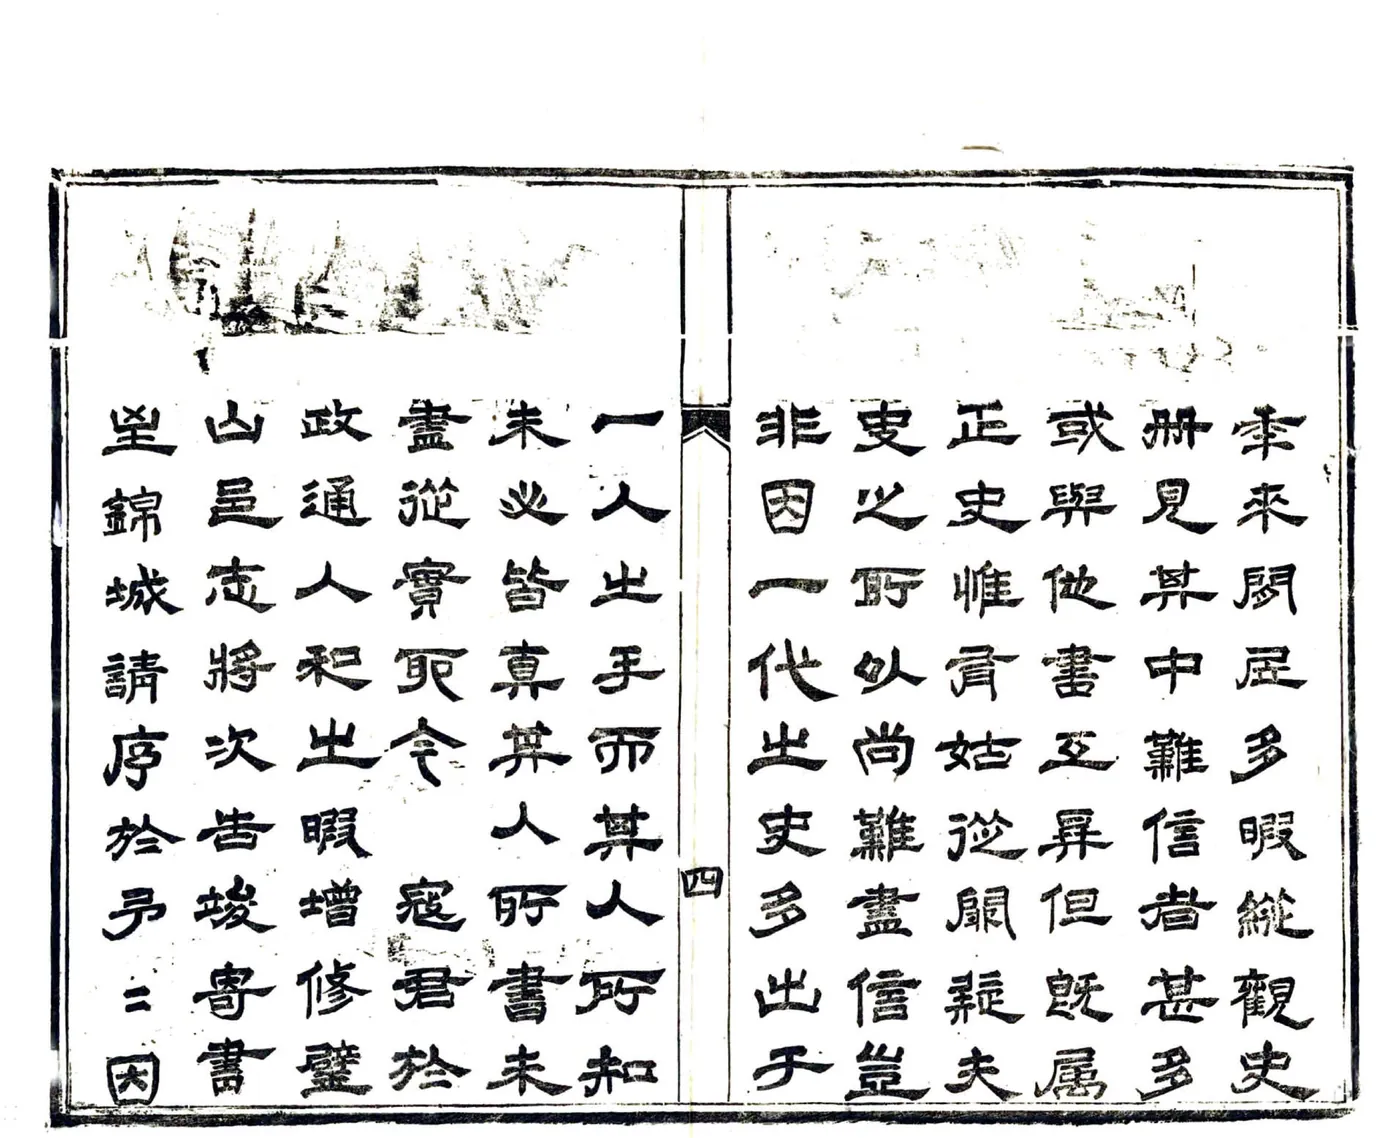 年來閒居多暇縱觀史
册見其中難信者甚多
或與他書互異但既属
正史惟有姑從闕疑夫
史之所以尚難盡信豈
非因一代之史多出于
四
一人之手而其人所知
未必皆真其人所書未
盡從實耶今 寇君於
政通人和之暇增修璧
山邑志將次告竣寄書
至錦城請序於予二因